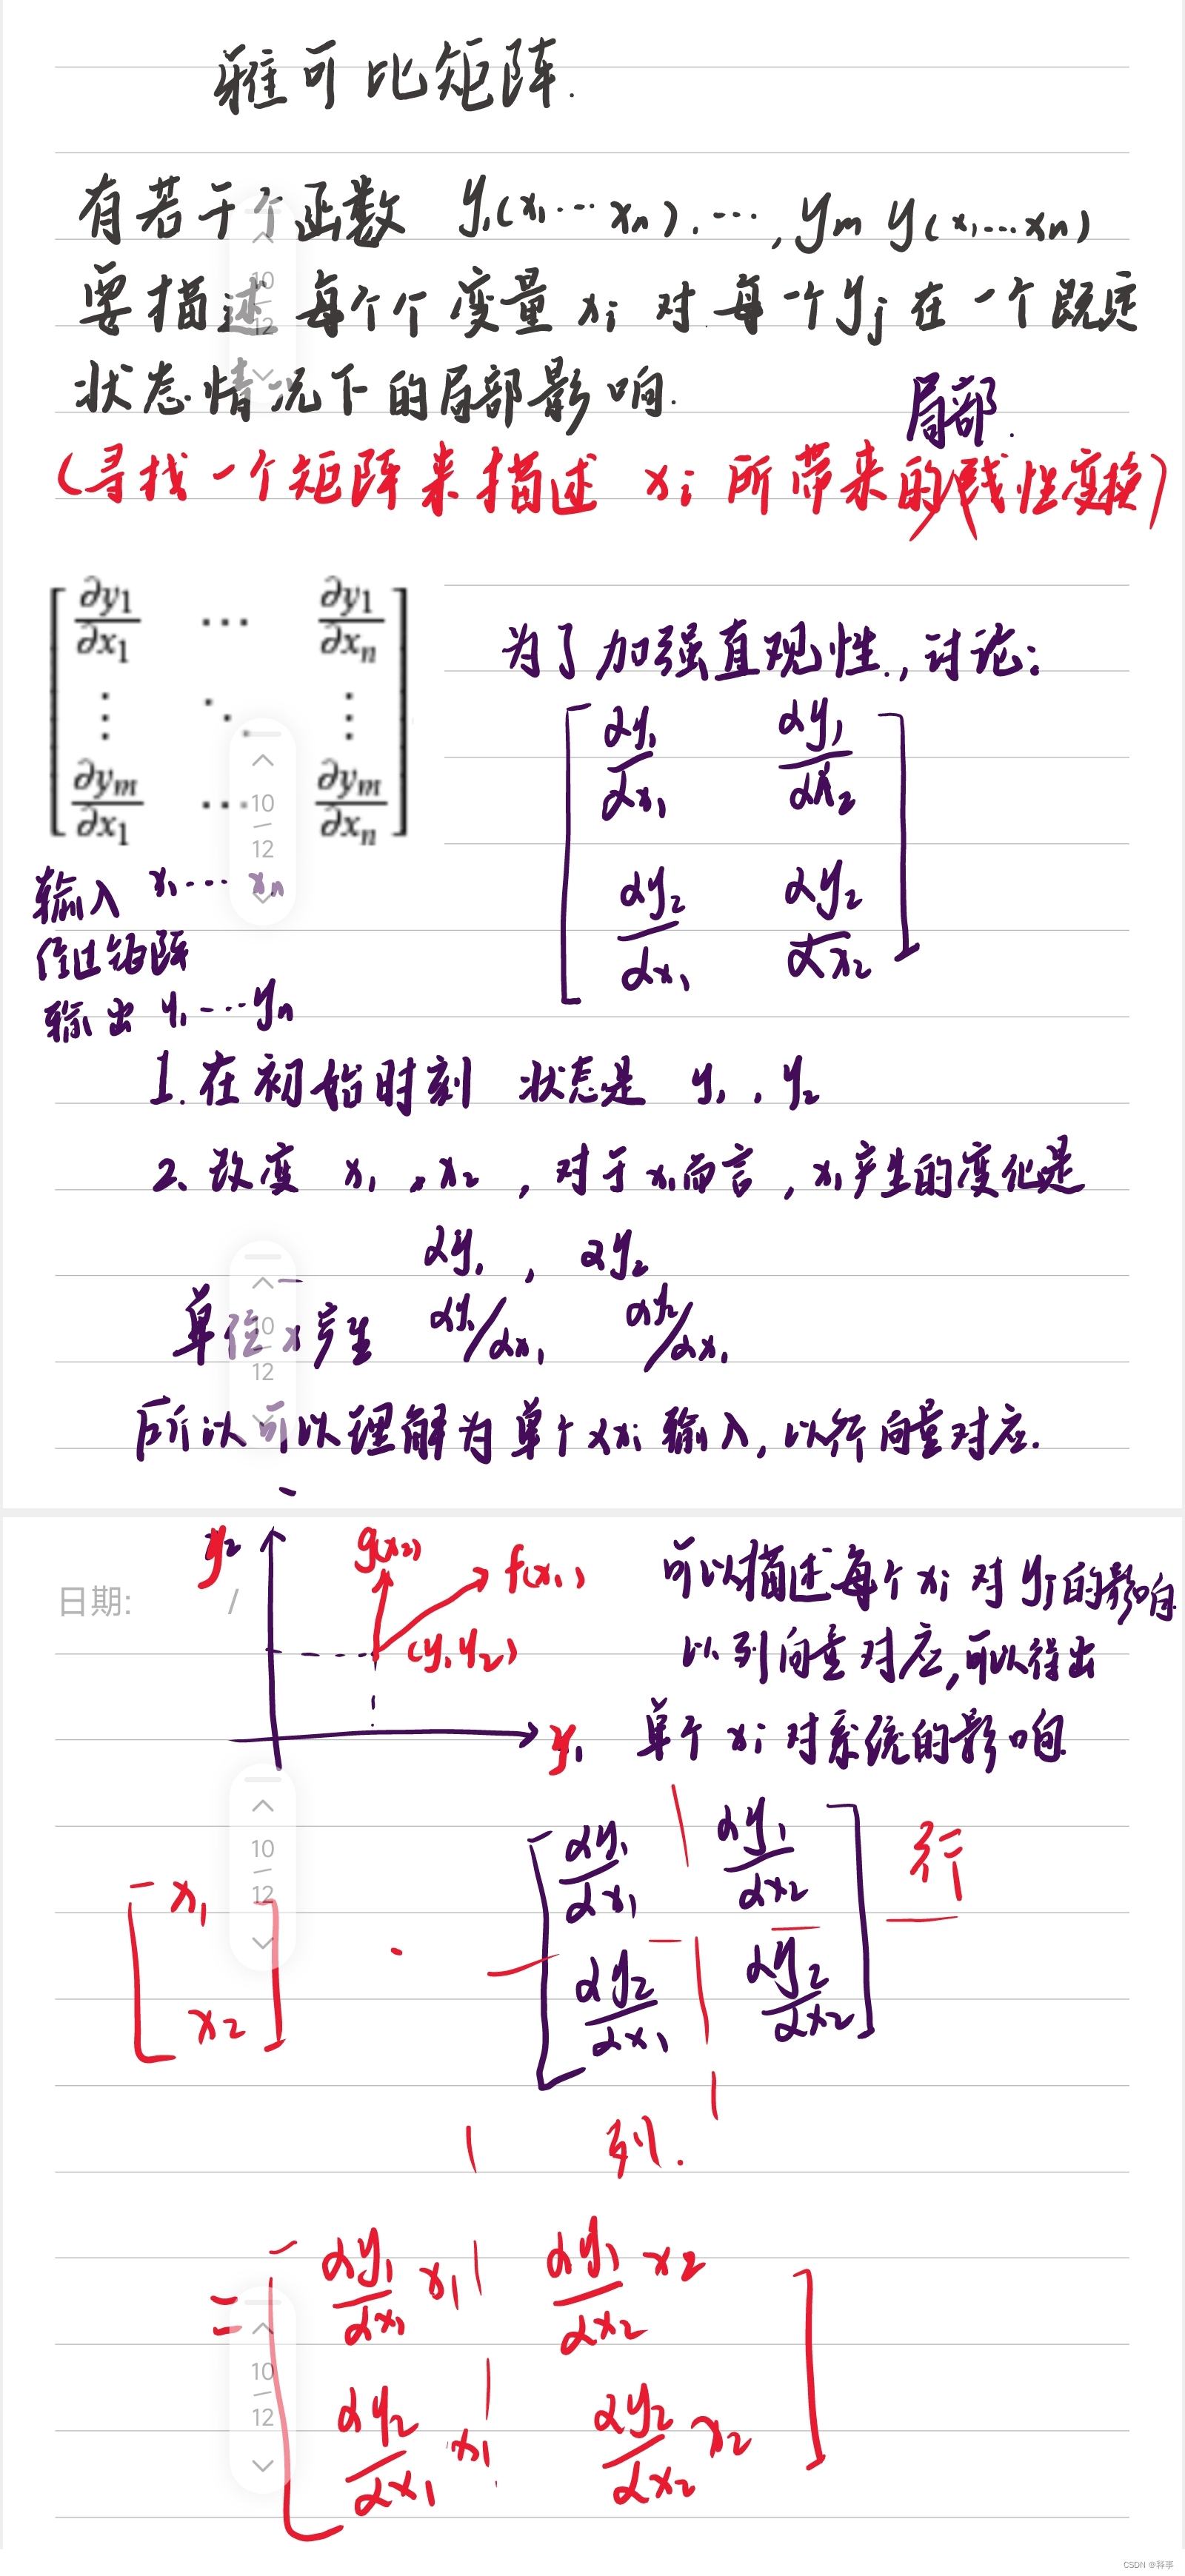 雅可比矩阵.
有若干个函数 y₁(x₁…xₙ),…,yₘ y(x₁…xₙ)
要描述每个个变量 xᵢ 对每一个yⱼ在一个既定
状态情况下的局部影响.
局部.
(寻找一个矩阵来描述 xᵢ 所带来的线性变换)
∂y₁/∂x₁ … ∂y₁/∂xₙ
⋮ ⋱ ⋮
∂yₘ/∂x₁ … ∂yₘ/∂xₙ
为了加强直观性,讨论:
∂y₁/∂x₁ ∂y₁/∂x₂
∂y₂/∂x₁ ∂y₂/∂x₂
输入 x₁…xₙ
经过矩阵
输出 y₁…yₙ
1.在初始时刻 状态是 y₁,y₂
2.改变 x₁,x₂,对于x₁而言,x₁产生的变化是
∂y₁,∂y₂
单位x产生 ∂y₁/∂x₁ ∂y₂/∂x₁
所以可以理解为单个xᵢ输入,以行向量对应.
日期: /
y₂
g(x₂)
f(x₁)
(y₁y₂)
y₁
可以描述每个xᵢ对yⱼ的影响
以列向量对应,可以得出
单个xᵢ对系统的影响
x₁
x₂
·
∂y₁/∂x₁ ∂y₁/∂x₂
∂y₂/∂x₁ ∂y₂/∂x₂
行
列.
= ∂y₁/∂x₁ x₁ ∂y₁/∂x₂ x₂
∂y₂/∂x₁ x₁ ∂y₂/∂x₂ x₂
10
12
10
12
10
12
10
12
10
12
CSDN @释事